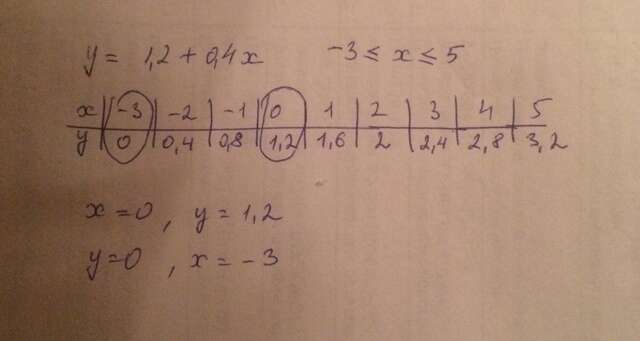 y = 1,2 + 0,4x -3 ≤ x ≤ 5
x | -3 | -2 | -1 | 0 | 1 | 2 | 3 | 4 | 5
y | 0 | 0,4 | 0,8 | 1,2 | 1,6 | 2 | 2,4 | 2,8 | 3,2
x = 0 , y = 1,2
y = 0 , x = -3